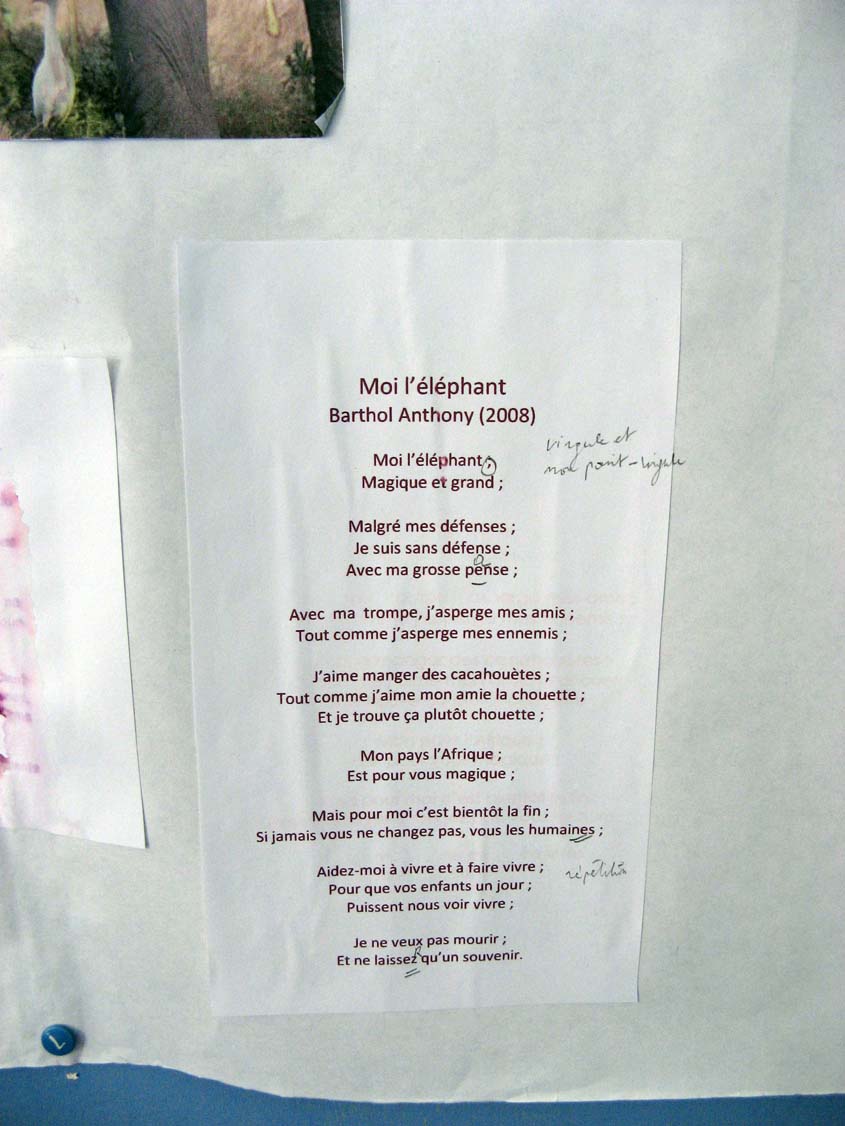 Moi l'éléphant
Barthol Anthony (2008)
Moi l'éléphant ;
virgule et
non point-virgule
Magique et grand ;
Malgré mes défenses ;
Je suis sans défense ;
a
Avec ma grosse pense ;
Avec ma trompe, j'asperge mes amis ;
Tout comme j'asperge mes ennemis ;
J'aime manger des cacahouètes ;
Tout comme j'aime mon amie la chouette ;
Et je trouve ça plutôt chouette ;
Mon pays l'Afrique ;
Est pour vous magique ;
Mais pour moi c'est bientôt la fin ;
Si jamais vous ne changez pas, vous les humaines ;
Aidez-moi à vivre et à faire vivre ;
répétition
Pour que vos enfants un jour ;
Puissent nous voir vivre ;
Je ne veux pas mourir ;
R
Et ne laissez qu'un souvenir.